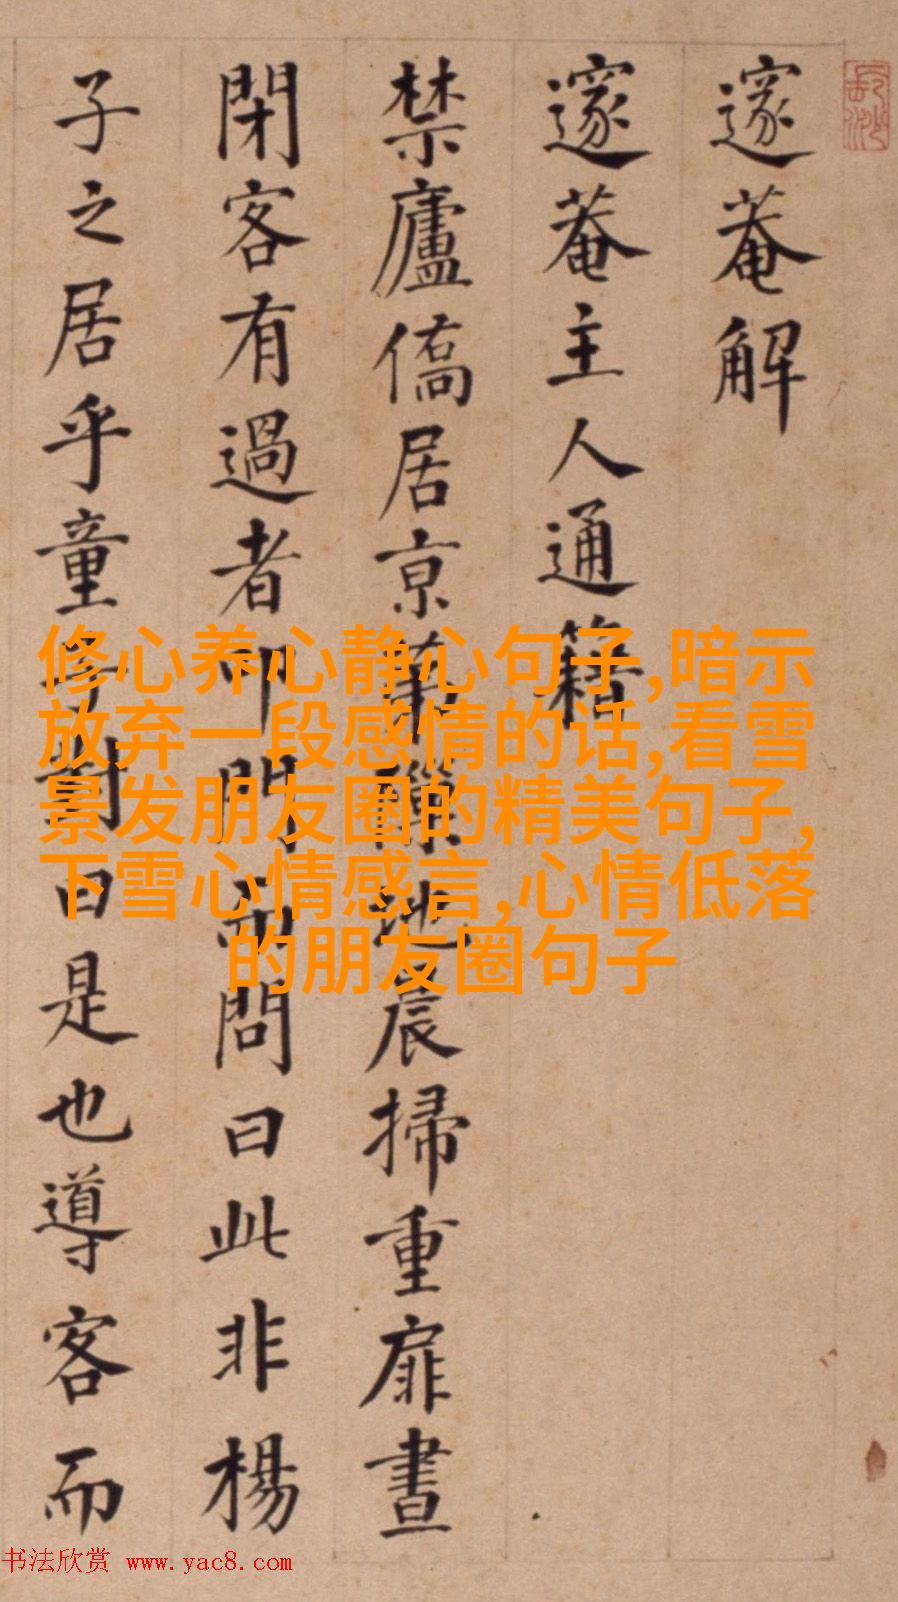 邃菴解
邃菴主人通籍
禁廬僑居京第地晨掃重扉晝
閉客有過者叩門而問曰此非楊
子之居乎童子對曰是也導客而
修心养心静心句子,暗示
放弃一段感情的话,看雪
景发朋友圈的精美句子,
下雪心情感言,心情低落
的朋友圈句子
书法欣赏 www.yac8.com